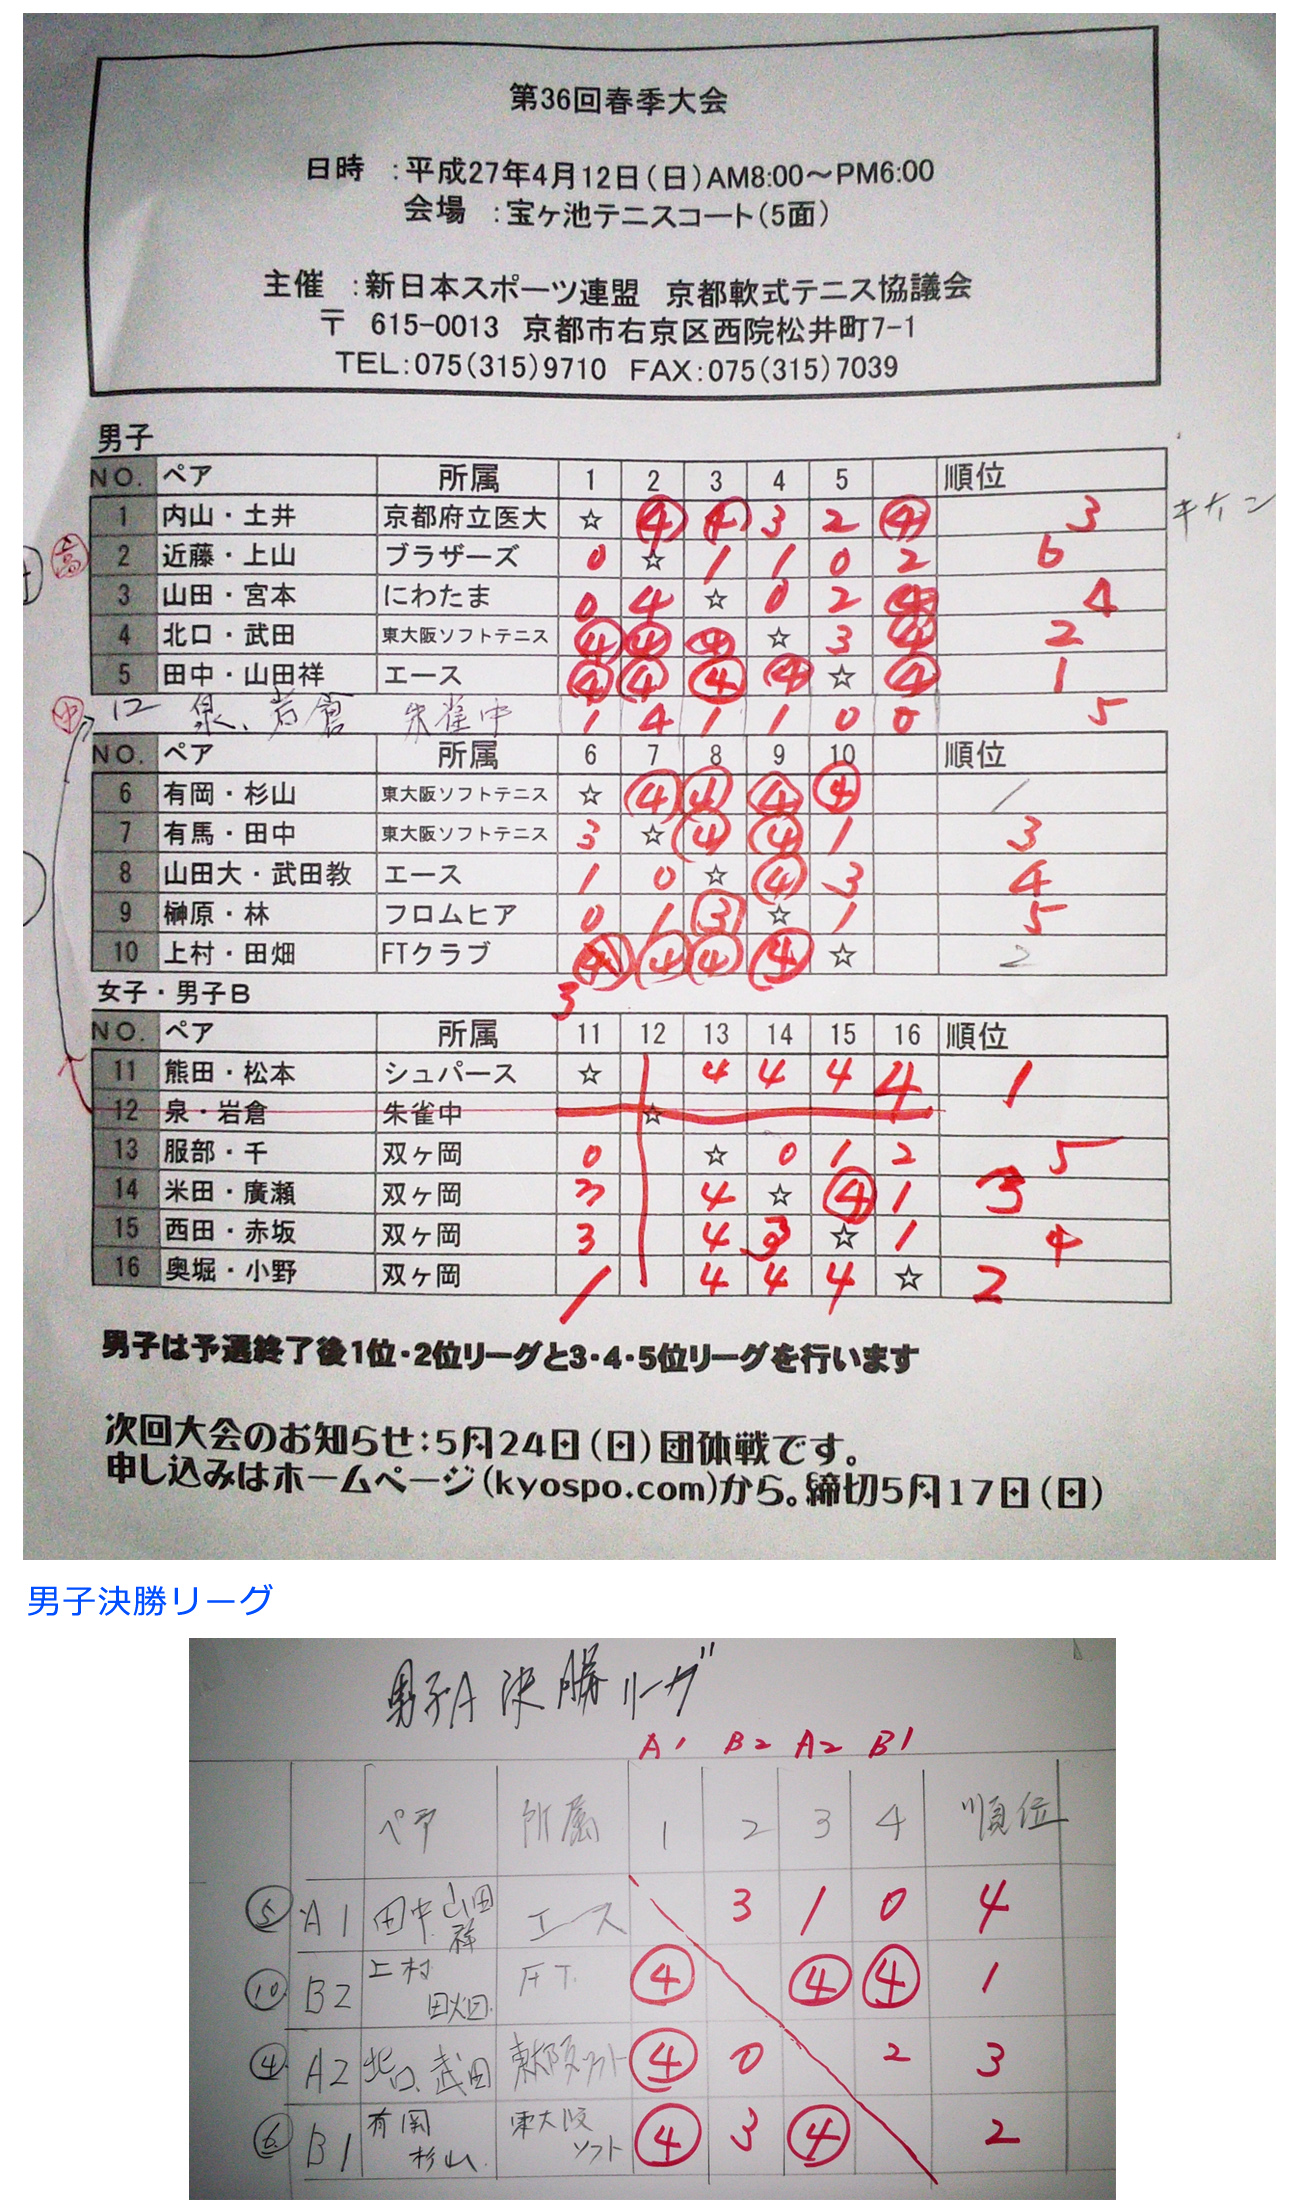 第36回春季大会
日時 :平成27年4月12日(日)AM8:00～PM6:00
会場 :宝ヶ池テニスコート(5面)
主催 :新日本スポーツ連盟 京都軟式テニス協議会
〒 615-0013 京都市右京区西院松井町7-1
TEL:075(315)9710 FAX:075(315)7039
男子
NO. ペア 所属 1 2 3 4 5 順位
1 内山・土井 京都府立医大 ☆ 4 4 3 2 4 3 キケン
高 2 近藤・上山 ブラザーズ 0 ☆ 1 1 0 2 6
3 山田・宮本 にわたま 0 4 ☆ 0 2 4 4
4 北口・武田 東大阪ソフトテニス 4 4 4 ☆ 3 4 2
5 田中・山田祥 エース 4 4 4 4 ☆ 4 1
中 12 泉、岩倉 朱雀中 1 4 1 1 0 0 5
NO. ペア 所属 6 7 8 9 10 順位
6 有岡・杉山 東大阪ソフトテニス ☆ 4 4 4 4 1
7 有馬・田中 東大阪ソフトテニス 3 ☆ 4 4 1 3
8 山田大・武田教 エース 1 0 ☆ 4 3 4
9 榊原・林 フロムヒア 0 1 3 ☆ 1 5
10 上村・田畑 FTクラブ 4 4 4 ☆ 2
3
女子・男子B
NO. ペア 所属 11 12 13 14 15 16 順位
11 熊田・松本 シュパース ☆ 4 4 4 4 1
12 泉・岩倉 朱雀中 ☆
13 服部・千 双ヶ岡 0 ☆ 0 1 2 5
14 米田・廣瀬 双ヶ岡 4 ☆ 4 1 3
15 西田・赤坂 双ヶ岡 3 4 3 ☆ 1 4
16 奥堀・小野 双ヶ岡 1 4 4 4 ☆ 2
男子は予選終了後1位・2位リーグと3・4・5位リーグを行います
次回大会のお知らせ:5月24日(日)団体戦です。
申し込みはホームページ(kyospo.com)から。締切5月17日(日)
男子決勝リーグ
男子A 決勝リーグ
A1 B2 A2 B1
ペア 所属 1 2 3 4 順位
⑤ A1 田中 山田祥 エース 3 1 0 4
⑩ B2 上村 田畑 FT. ④ ④ ④ 1
④ A2 北口、武田 東大阪ソフト ④ 0 2 3
⑥ B1 有岡 杉山 東大阪ソフト ④ 3 ④ 2